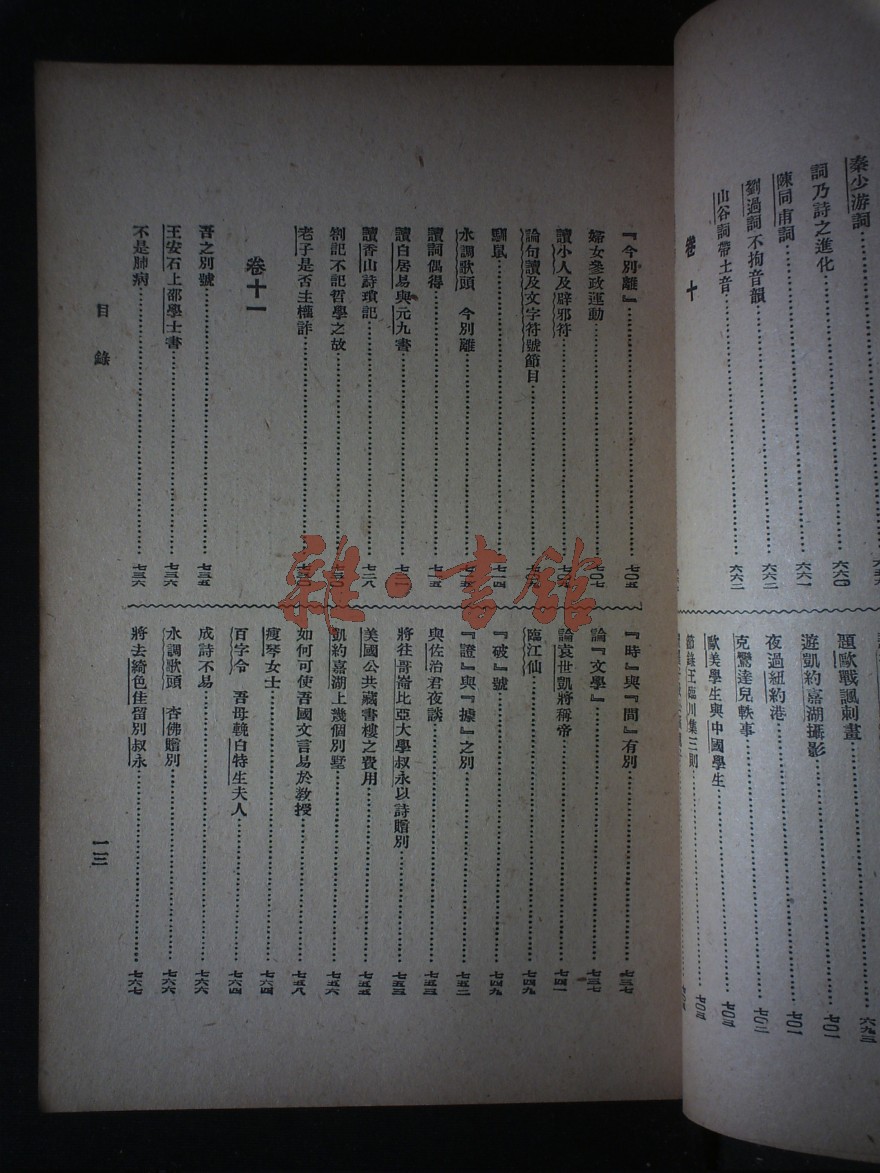 秦少游詞
詞乃詩之進化……六六〇
陳同甫詞……六六一
劉過詞不拘音韻……六六二
山谷詞帶土音……六六二
卷十
題歐戰諷刺畫……六九三
遊凱約嘉湖攝影……七〇一
夜過紐約港……七〇一
克鸞達兒軼事……七〇二
歐美學生與中國學生……七〇三
節錄王臨川集三則……七〇三
『今別離』……七〇五
婦女參政運動……七〇七
讀小人及辟邪符
論句讀及文字符號節目……七〇九
馴鼠……七一四
水調歌頭 今別離……七一五
讀詞偶得……七一五
讀白居易與元九書
讀香山詩瑣記……七二八
劄記不記哲學之故……七三〇
老子是否主權詐……七三〇
卷十一
吾之別號……七三五
王安石上邵學士書……七三六
不是肺病……七三六
『時』與『間』有別……七三七
論『文學』……七三七
論袁世凱將稱帝……七四一
臨江仙……七四九
『破』號……七四九
『證』與『據』之別……七五二
與佐治君夜談……七五三
將往哥崙比亞大學叔永以詩贈別……七五三
美國公共藏書樓之費用……七五五
凱約嘉湖上幾個別墅……七五六
如何可使吾國文言易於教授……七五八
瘦琴女士……七六四
百字令 吾母輓白特生夫人……七六四
成詩不易……七六六
水調歌頭 杏佛贈別……七六六
將去綺色佳留別叔永……七六七
目錄
一三
雜·書館